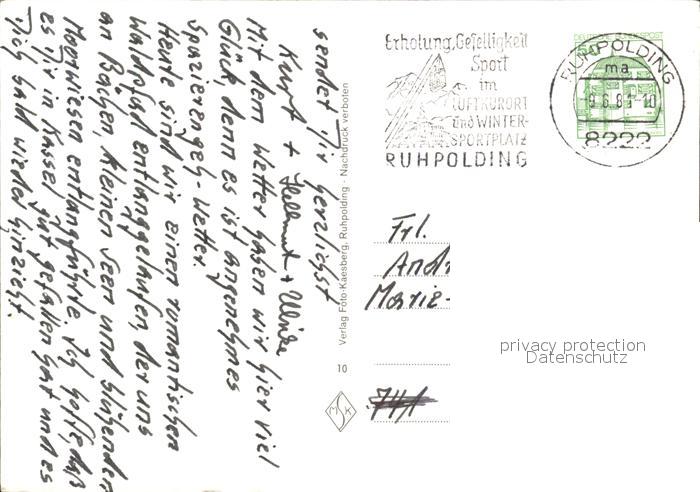 sendet Dir herzlichst
Kurt + Hellmut + Ulrike
Mit dem Wetter haben wir hier viel
Glück, denn es ist angenehmes
Spazierengeh-Wetter.
Heute sind wir einen romantischen
Waldpfad entlanggelaufen, der uns
an Bächen kleinen Seen und blühenden
Moorwiesen entlangführte. Ich hoffe, daß
es Dir in Kassel gut gefallen hat und es
Dich bald wieder hinzieht.
Verlag Foto-Kaesberg, Ruhpolding - Nachdruck verboten
10
Erholung, Geselligkeit
Sport
im
LUFTKURORT
und WINTER-
SPORTPLATZ
RUHPOLDING
DEUTSCHE BUNDESPOST
50
RUHPOLDING
ma
-9.6.81-10
8222
Frl.
Andr
Marie-
privacy protection
Datenschutz